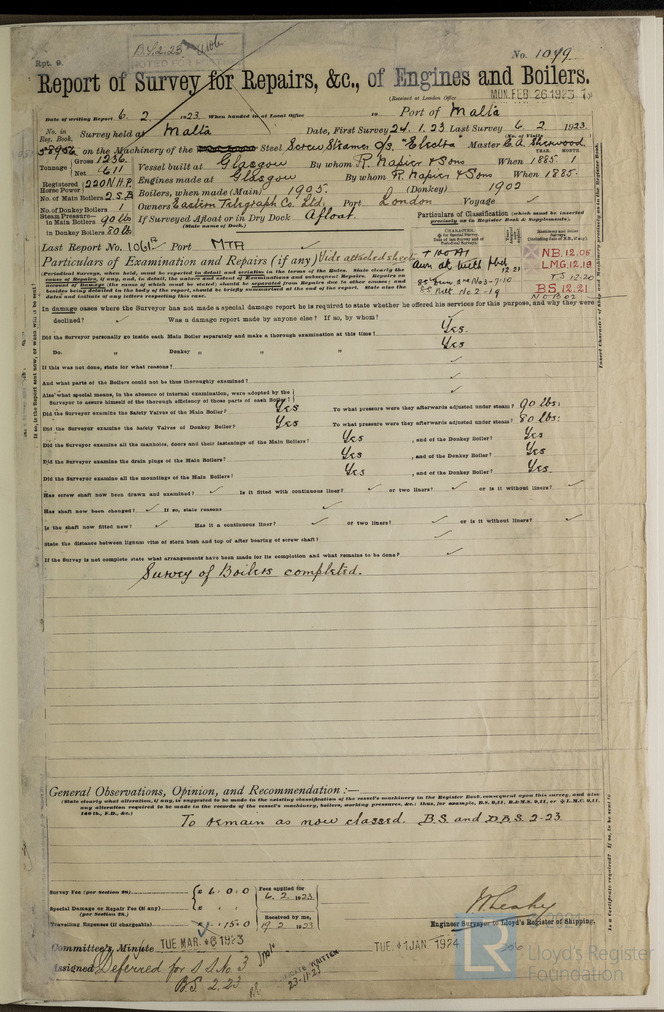 B.S. 2.23
Rpt. 9.
No. 1079
Report of Survey for Repairs, &c., of Engines and Boilers.
(Received at London Office MON. FEB. 26 1923
Date of writing Report 6. 2. 1923 When handed in at Local Office 19 Port of Malta
No. in Reg. Book. Survey held at Malta Date, First Survey 24. 1. 23 Last Survey 6. 2. 1923
on the Machinery of the Steel Screw Steamer "Electra" Master E. A. Sherwood
Tonnage Gross 1236 Net 611 Vessel built at Glasgow By whom R. Napier & Sons When 1885. 1
Registered Horse Power 220 N.H.P. Engines made at Glasgow By whom R. Napier & Sons When 1885.
No. of Main Boilers 2 S.B. Boilers, when made (Main) 1905. (Donkey) 1902
No. of Donkey Boilers 1 Owners Eastern Telegraph Co. Ltd. Port London Voyage ✓
Steam Pressure in Main Boilers 90 lb If Surveyed Afloat or in Dry Dock Afloat.
in Donkey Boilers 80 lb (State name of Dock.)
Particulars of Classification (which must be inserted precisely as in Register Book & Supplements).
Last Report No. Port MTA
Particulars of Examination and Repairs (if any) Vide attached sheet
+ 100A1
12.21
NB. 12.05
LMG. 12.18
TS 12.20
BS. 12.21
(Periodical Surveys, when held, must be reported in detail and seriatim in the terms of the Rules. State clearly the cause of Repairs, if any, and, in detail, the nature and extent of Examinations and subsequent Repairs. Repairs on account of Damage (the cause of which must be stated) should be separated from Repairs due to other causes; and besides being detailed in the body of the report, should be briefly summarised at the end of the report. State also the dates and initials of any letters respecting this case.
In damage cases where the Surveyor has not made a special damage report he is required to state whether he offered his services for this purpose, and why they were
declined? ✓ Was a damage report made by anyone else? If so, by whom? ✓
Did the Surveyor personally go inside each Main Boiler separately and make a thorough examination at this time? Yes.
Do. „ Donkey „ „ „ Yes
If this was not done, state for what reasons? ✓
And what parts of the Boilers could not be thoroughly examined? ✓
Also what special means, in the absence of internal examination, were adopted by the Surveyor to assure himself of the thorough efficiency of those parts of each Boiler? ✓
Did the Surveyor examine the Safety Valves of the Main Boiler? Yes To what pressure were they afterwards adjusted under steam? 90 lbs:
Did the Surveyor examine the Safety Valves of Donkey Boiler? Yes To what pressure were they afterwards adjusted under steam? 80 lbs:
Did the Surveyor examine all the manholes, doors and their fastenings of the Main Boilers? Yes , and of the Donkey Boiler? Yes
Did the Surveyor examine the drain plugs of the Main Boilers? Yes , and of the Donkey Boiler? Yes
Did the Surveyor examine all the mountings of the Main Boilers? Yes , and of the Donkey Boiler? Yes
Has screw shaft now been drawn and examined? ✓ Is it fitted with continuous liner? ✓ or two liners? ✓ or is it without liners? ✓
Has shaft now been changed? ✓ If so, state reasons ✓
Is the shaft now fitted new? ✓ Has it a continuous liner? ✓ or two liners? ✓ or is it without liners? ✓
State the distance between lignum vitæ of stern bush and top of after bearing of screw shaft? ✓
If the Survey is not complete state what arrangements have been made for its completion and what remains to be done? ✓
Survey of Boilers completed.
General Observations, Opinion, and Recommendation :—
(State clearly what alteration, if any, is suggested to be made in the existing classification of the vessel's machinery in the Register Book, consequent upon this survey, and also
To remain as now classed. B.S. and D.B.S. 2-23
Survey Fee (per Section 29) £ 6. 0. 0 Fees applied for 6. 2. 1923
Special Damage or Repair Fee (if any) (per Section 29.) £
Received by me, 19 2 1923
Travelling Expenses (if chargeable) £ . 15. 0
Engineer Surveyor to Lloyd's Register of Shipping.
Committee's Minute TUE. MAR. 6 1923
TUE. 1 JAN. 1924
Assigned Deferred for S.S. No. 3
B.S. 2.23
CERTIFICATE WRITTEN
23.11.23
LR
Lloyd's Register
Foundation